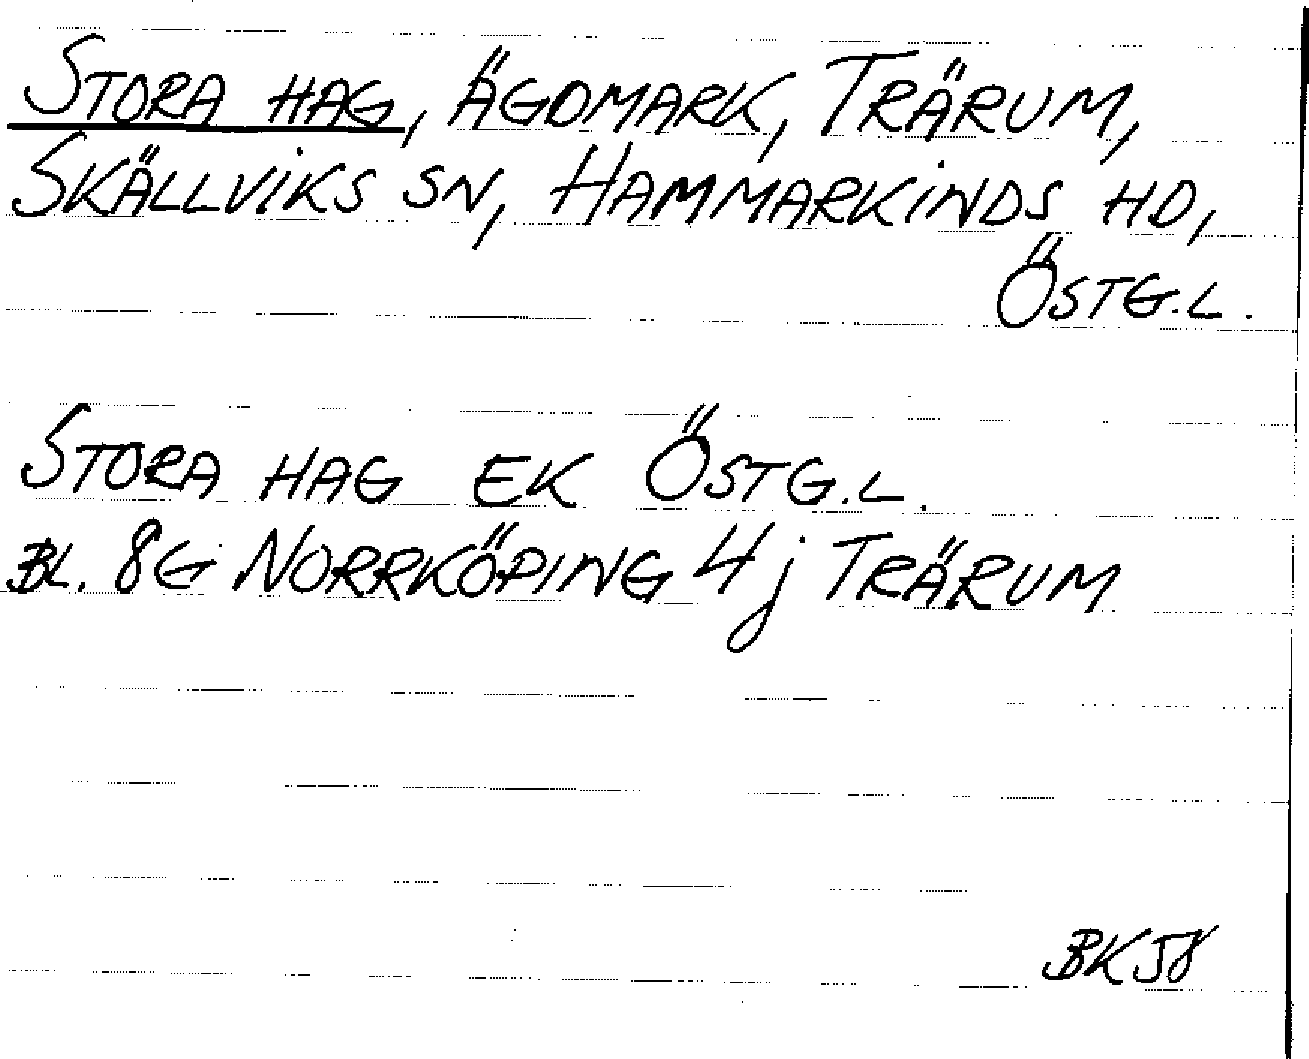 STORA HAG, ÄGOMARK, TRÄRUM,
SKÄLLVIKS SN, HAMMARKINDS HD,
ÖSTG.L.
STORA HAG EK ÖSTG.L.
BL. 8G NORRKÖPING 4j TRÄRUM
BK58